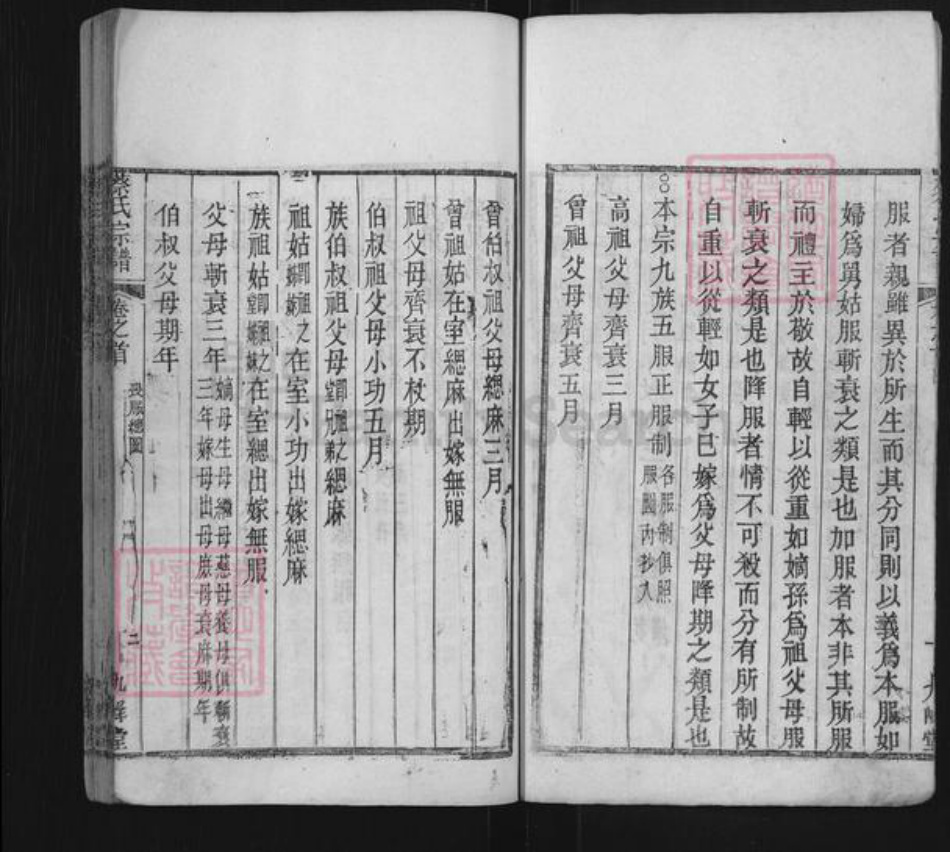 服者親雖異於所生而其分同則以義爲本服如
婦爲舅姑服斬衰之類是也加服者本非其所服
而禮主於敬故自輕以從重如嫡孫爲祖父母服
斬衰之類是也降服者情不可殺而分有所制故
自重以從輕如女子已嫁爲父母降期之類是也
○本宗九族五服正服制 各服制俱照
服圖內抄入
高祖父母齊衰三月
曾祖父母齊衰五月
曾伯叔祖父母緦麻三月
曾祖姑在室緦麻出嫁無服
祖父母齊衰不杖期
伯叔祖父母小功五月
族伯叔祖父母 卽祖之
堂兄弟 緦麻
祖姑 卽祖之
姊妹 在室小功出嫁緦麻
族祖姑 卽祖之
堂姊妹 在室緦出嫁無服
父母斬衰三年 嫡母生母繼母慈母養母俱斬衰
三年嫁母出母庶母衰麻期年
伯叔父母期年
蔡氏宗譜
卷之首
服總圖
二
九峰堂